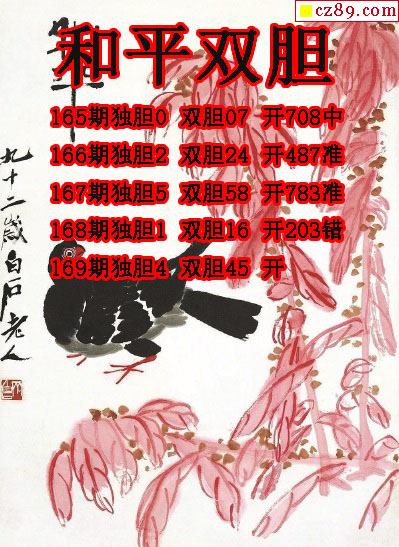 cz89.com
和平双胆
165期独胆0 双胆07 开708中
166期独胆2 双胆24 开487准
167期独胆5 双胆58 开783准
168期独胆1 双胆16 开203错
169期独胆4 双胆45 开
九十二岁白石老人